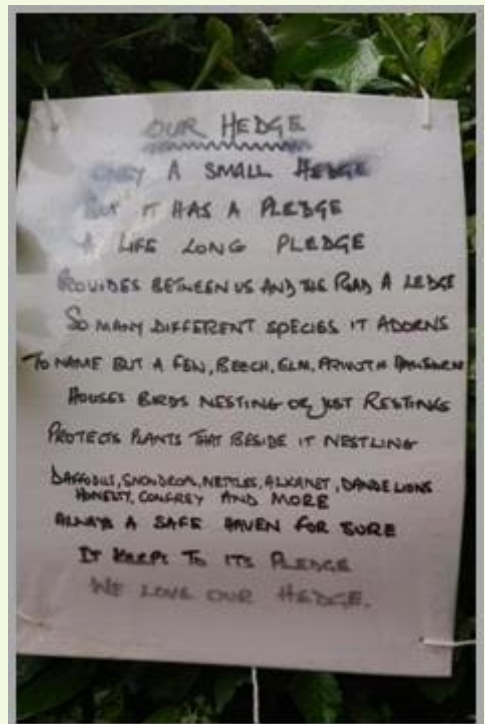 OUR HEDGE
ONLY A SMALL HEDGE
BUT IT HAS A PLEDGE
A LIFE LONG PLEDGE
PROVIDES BETWEEN US AND THE ROAD A LEDGE
SO MANY DIFFERENT SPECIES IT ADORNS
TO NAME BUT A FEW, BEECH, ELM,
HOUSES BIRDS NESTING OR JUST RESTING
PROTECTS PLANTS THAT BESIDE IT NESTLING
DAFFODILS, SNOWDROP, NETTLES, ALKANET, DANDELIONS
HONESTY, COMFREY AND MORE
ALWAYS A SAFE HAVEN FOR SURE
IT KEEPS TO ITS PLEDGE
WE LOVE OUR HEDGE.